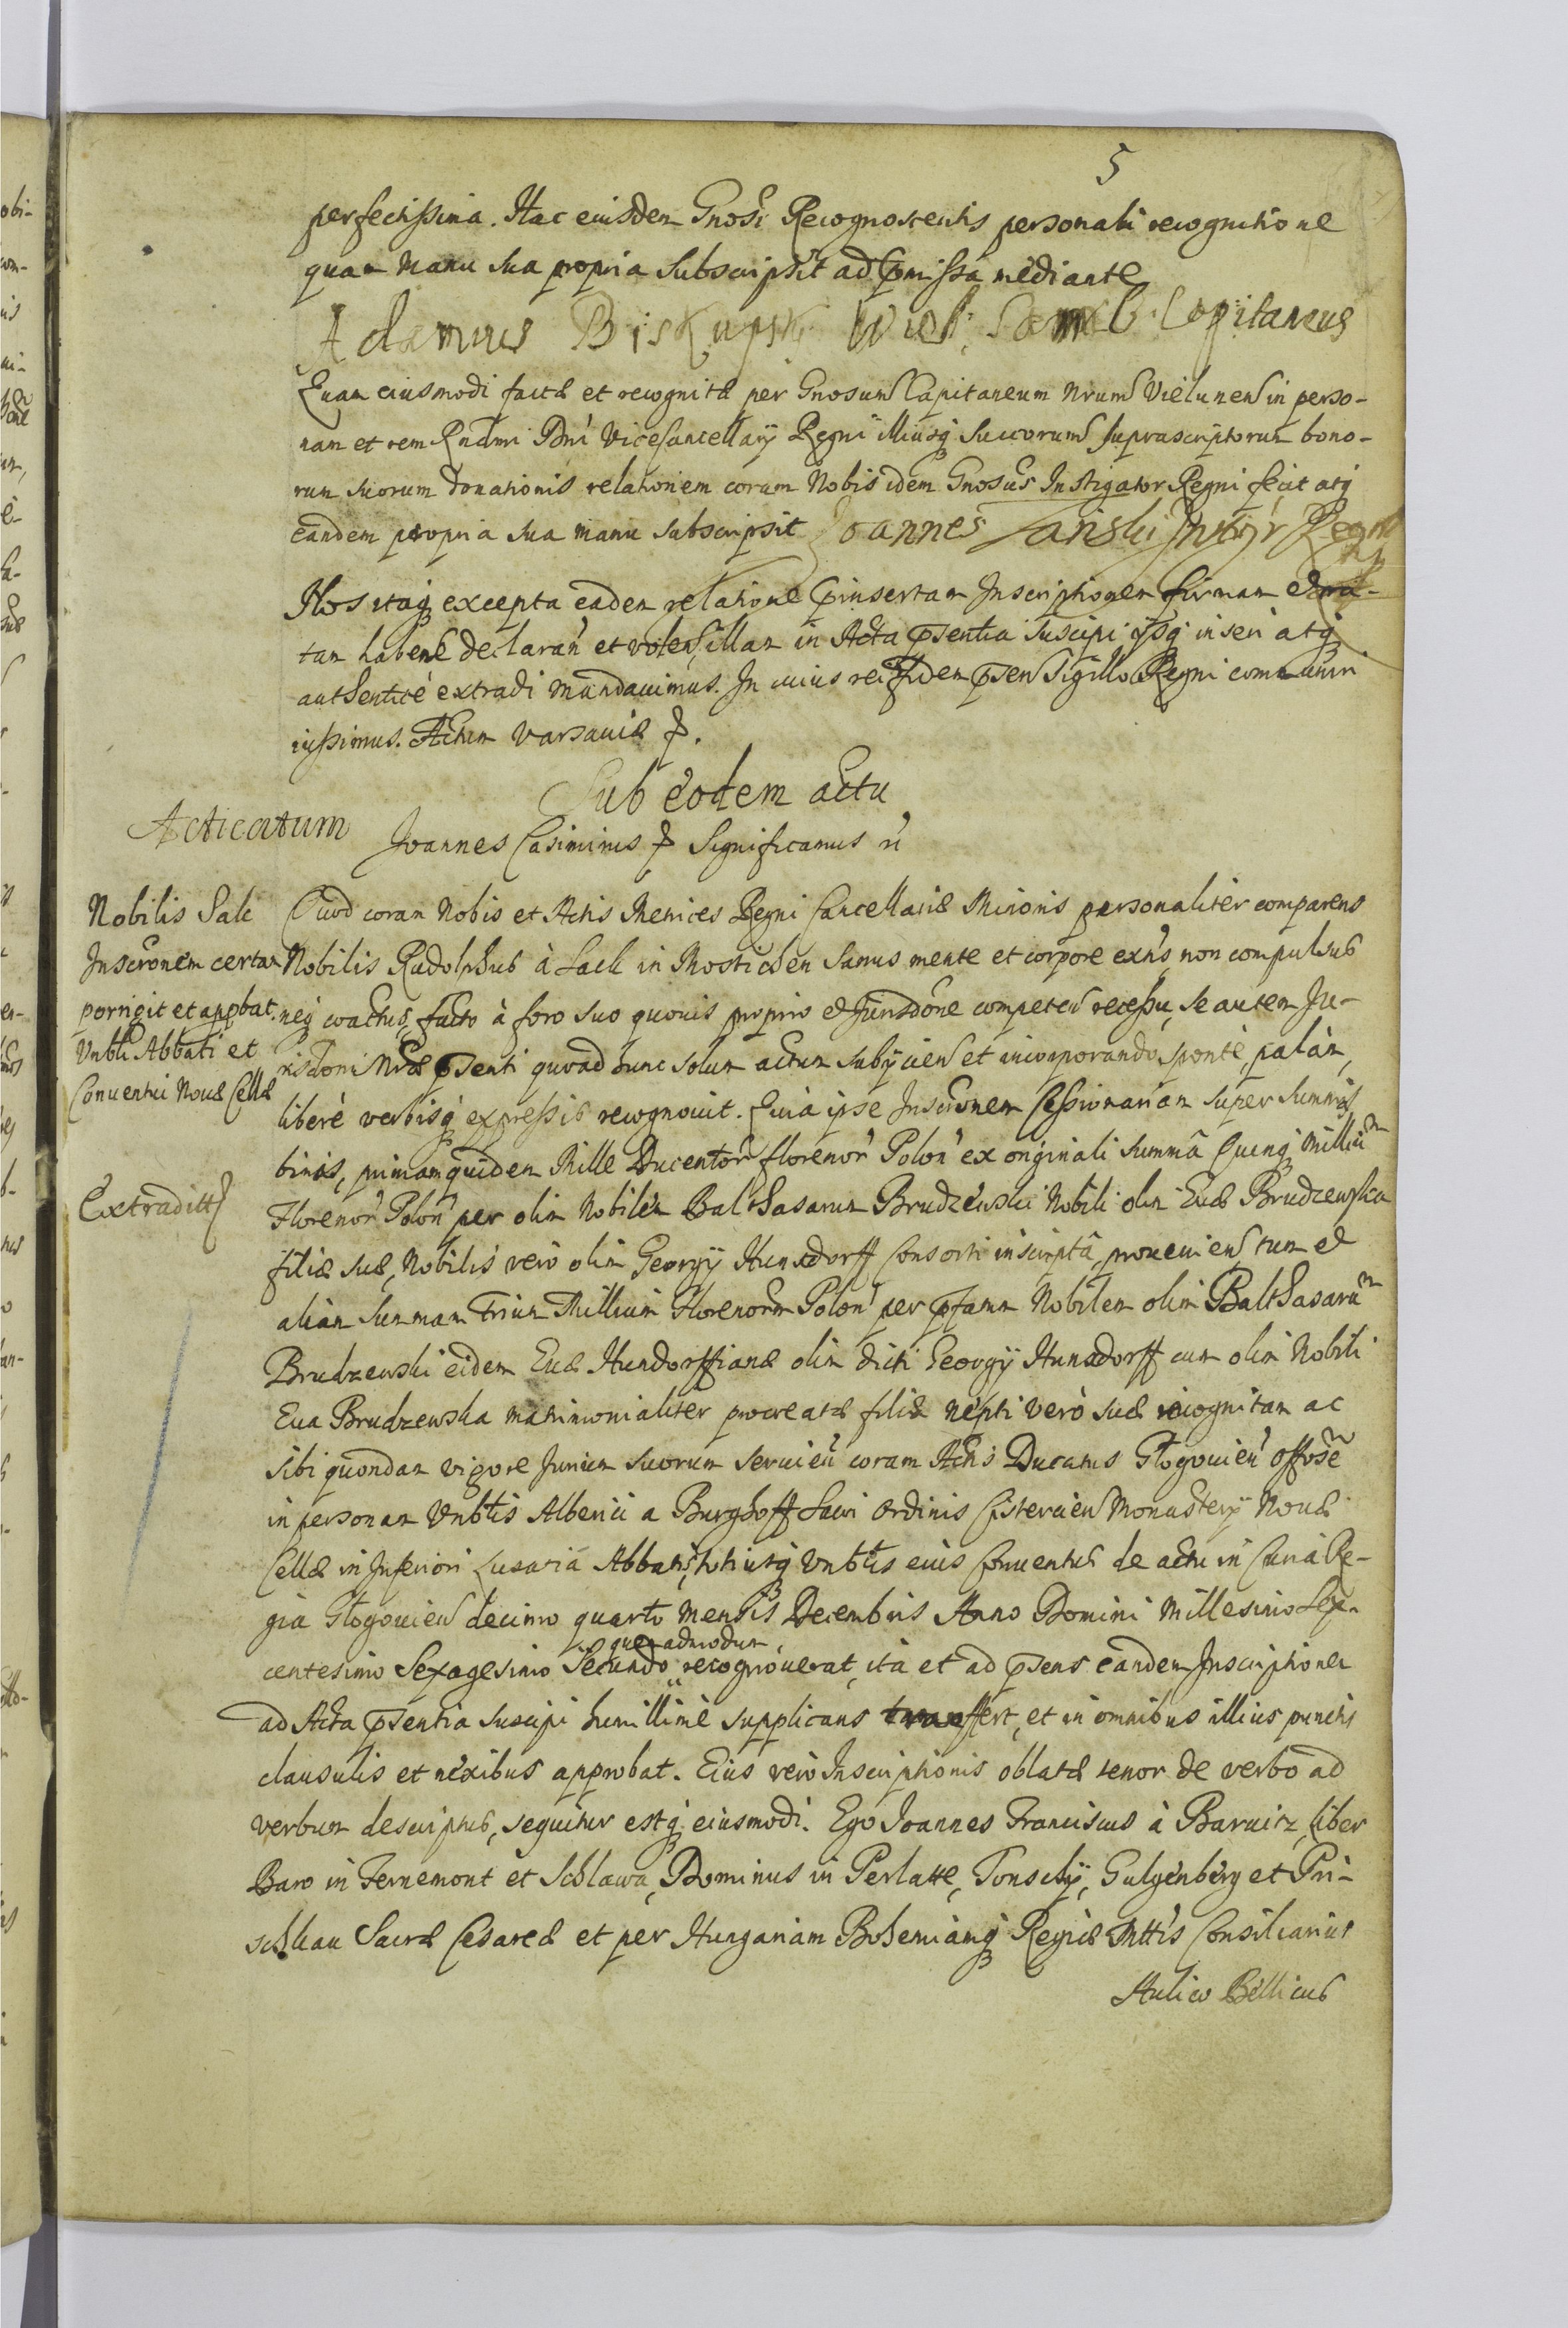 5
perfectissima. Hac eiusden Gnosi Recognoscentis personali recognitione
quam Manu sua propria Subscripsit ad pmissa mediante
Adamus Biskupski Capitaneus
Quam eiusmodi factæ et recognitæ per Gnosum Capitaneum Nrum Vielunen in perso-
nam et rem Rndmi Dni Vicecancellarij Regni illiusq Succorum suprascriptorum bono-
rum suorum donationis relationem coram Nobis idem Gnosus Instigator Regni fecit atq
eandem propria sua manu subscripsit Joannes Instigr Regni
Nos itaq excepta eadem relatione pinsertam Inscriptionem firmam et ra-
tam habere declaran et volen, illam in Acta psentia suscipi ijsq inseri atq
authentice extradi mandauimus. In cuius rei fidem psen Sigillo Regni communiri
iussimus. Actum Varsauiæ
Sub eodem actu
Acticatum
Joannes Casimirus Significamus
Nobilis Sak
Inscronem certam
porrigit et appbat
Vnbli Abbati et
Conuentui Nouæ Cellæ
Extraditt
Quod coram Nobis et Actis Metrices Regni Cancellariæ Minoris personaliter comparens
Nobilis Rudolphus à Sack in Mostichen Sanus mente et corpore exns, non compulsus
neq coactus, facto à foro suo quouis proprio et Jurisdone competen recessu, se autem Ju-
risdoni Nræ psenti quoad hunc solum actum subijcien et incorporando, sponte, palàm,
liberè verbisq expressis recognouit. Quia ipse Inscronem Cessionariam super summis
binis, primam quidem Mille Ducentor florenor Polon ex originali summâ Quinq Milliu
Florenor Polon per olim Nobilem Balthasarum Brudzewski Nobili olim Euæ Brudzewska
filiæ suæ, Nobilis vero olim Georgij Hunsdorff Consorti inscriptâ, prouenien, tum et
aliam summam Trium Millium Florenorum Polon per pfatum Nobilem olim Balthasaru
Brudzewski eidem Euæ Hundorffianæ olim dicti Georgij Hunsdorff cum olim Nobili
Eua Brudzewska matrimonialiter procreatæ filiæ nepti verò suæ recognitam ac
sibi quondam vigore Jurium suorum seruien coram Actis Ducatus Glogouien offose
in personam Vnblis Alberici a Burghoff Sacri Ordinis Cistercien Monasterij Nouæ
Cellæ in Inferiori Lusatia Abbatis, totiusq Vnblis eius Conuentus de actu in Curia Re-
gia Glogouien decimo quarto mensis Decembris Anno Domini Millesimo Sex-
centesimo Sexagesimo Secundo quemadmodum recognouerat, ita et ad psens eandem Inscriptionem
ad Acta psentia suscipi humillimè supplicans transffert, et in omnibus illius punctis
clausulis et nexibus approbat. Eius vero Inscriptionis oblatæ tenor de verbo ad
verbum descriptus, sequitur estq eiusmodi. Ego Joannes Franciscus à Barwitz, liber
Baro in Fernemont et Schlawa, Dominus in Perlatte, Tonschij, Gulgenberg et Pri-
schkau Sacræ Cesareæ et per Hungariam Bohemiamq Regiæ Mttis Consiliarius
Aulico Bellicus